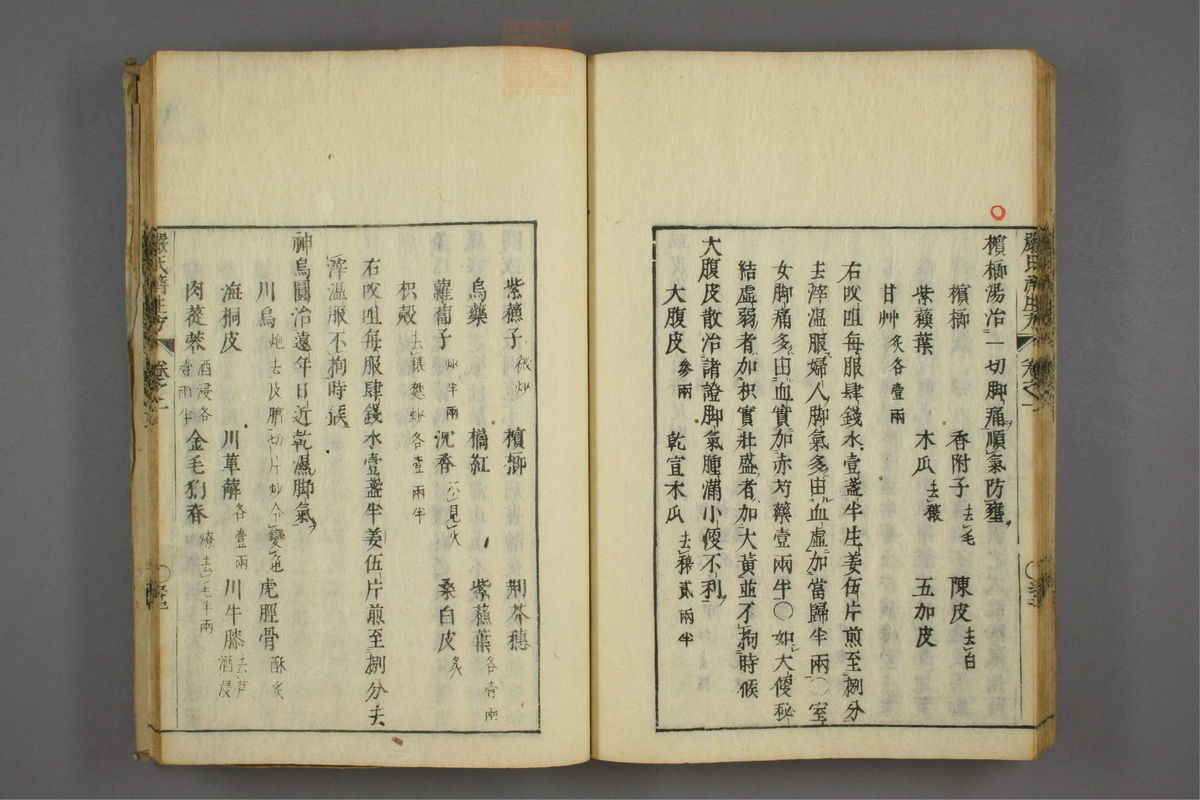 檳榔湯治一切脚痛順氣防壅
檳榔 香附子去毛 陳皮去白
紫蘓葉 木瓜去穰 五加皮
甘艸炙各壹兩
右㕮咀每服肆錢水壹盞半生姜伍片煎至捌分
去滓温服婦人脚氣多由血虛加當歸半兩○室
女脚痛多由血實加赤芍藥壹兩半○如大便秘
結虛弱者加枳實壯盛者加大黃並不拘時候
大腹皮散治諸證脚氣腫滿小便不利
大腹皮參兩 乾宣木瓜去穰貳兩半
嚴氏濟生方 卷之一
紫蘓子微炒 檳榔 荆芥穗
烏藥 橘紅 紫蘓葉各壹兩
蘿蔔子炒半兩 沉香不見火 桑白皮炙
枳殼去穰麩炒各壹兩半
右㕮咀每服肆錢水壹盞半姜伍片煎至捌分去
滓温服不拘時候
神烏圓治遠年日近乾濕脚氣
川烏炮去皮臍切片炒令變色 虎脛骨酥炙
海桐皮 川萆薢各壹兩 川牛膝去芦酒浸
肉蓯蓉酒浸各壹兩半 金毛狗脊燎去毛半兩
嚴氏濟生方 卷之一